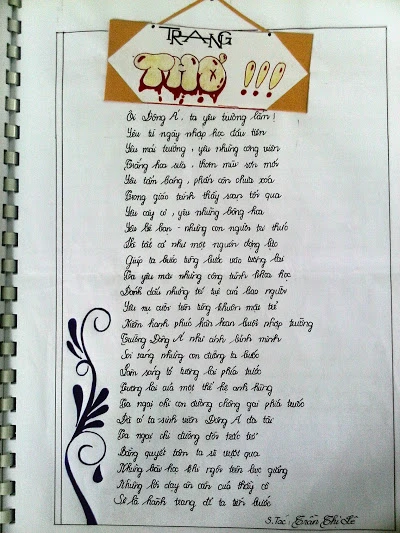 TRANG
THƠ !!!
Ôi Đông Á, ta yêu trường lắm!
Yêu từ ngày nhập học đầu tiên
Yêu mái trường, yêu những công viên
Trắng hoa sữa, thơm mùi sơn mới
Yêu tấm bảng, phấn còn chưa xóa
Trong giáo trình thầy soạn tối qua
Yêu cây cỏ, yêu những bông hoa
Yêu bè bạn - những con người tri thức
Và tất cả như một nguồn động lực
Giúp ta bước từng bước vào tương lai
Ta yêu mái những công trình khoa học
Đánh dấu những trí tuệ của bao người
Yêu nụ cười trên từng khuôn mặt trẻ
Niềm hạnh phúc hân hoan buổi nhập trường
Trường Đông Á như ánh bình minh
Soi sáng những con đường ta bước
Làm sáng tỏ tương lai phía trước
Tương lai của một thế hệ anh hùng
Ta ngại chi con đường chông gai phía trước
Đã là ta sinh viên Đông Á đa tài
Ta ngại chi đường đời trắc trở
Bằng quyết tâm ta sẽ vượt qua
Những bài học khi ngồi trên bục giảng
Những lời dạy ân cần của thầy cô
Sẽ là hành trang để ta tiến bước
S.Tác: Trần Thị Lê